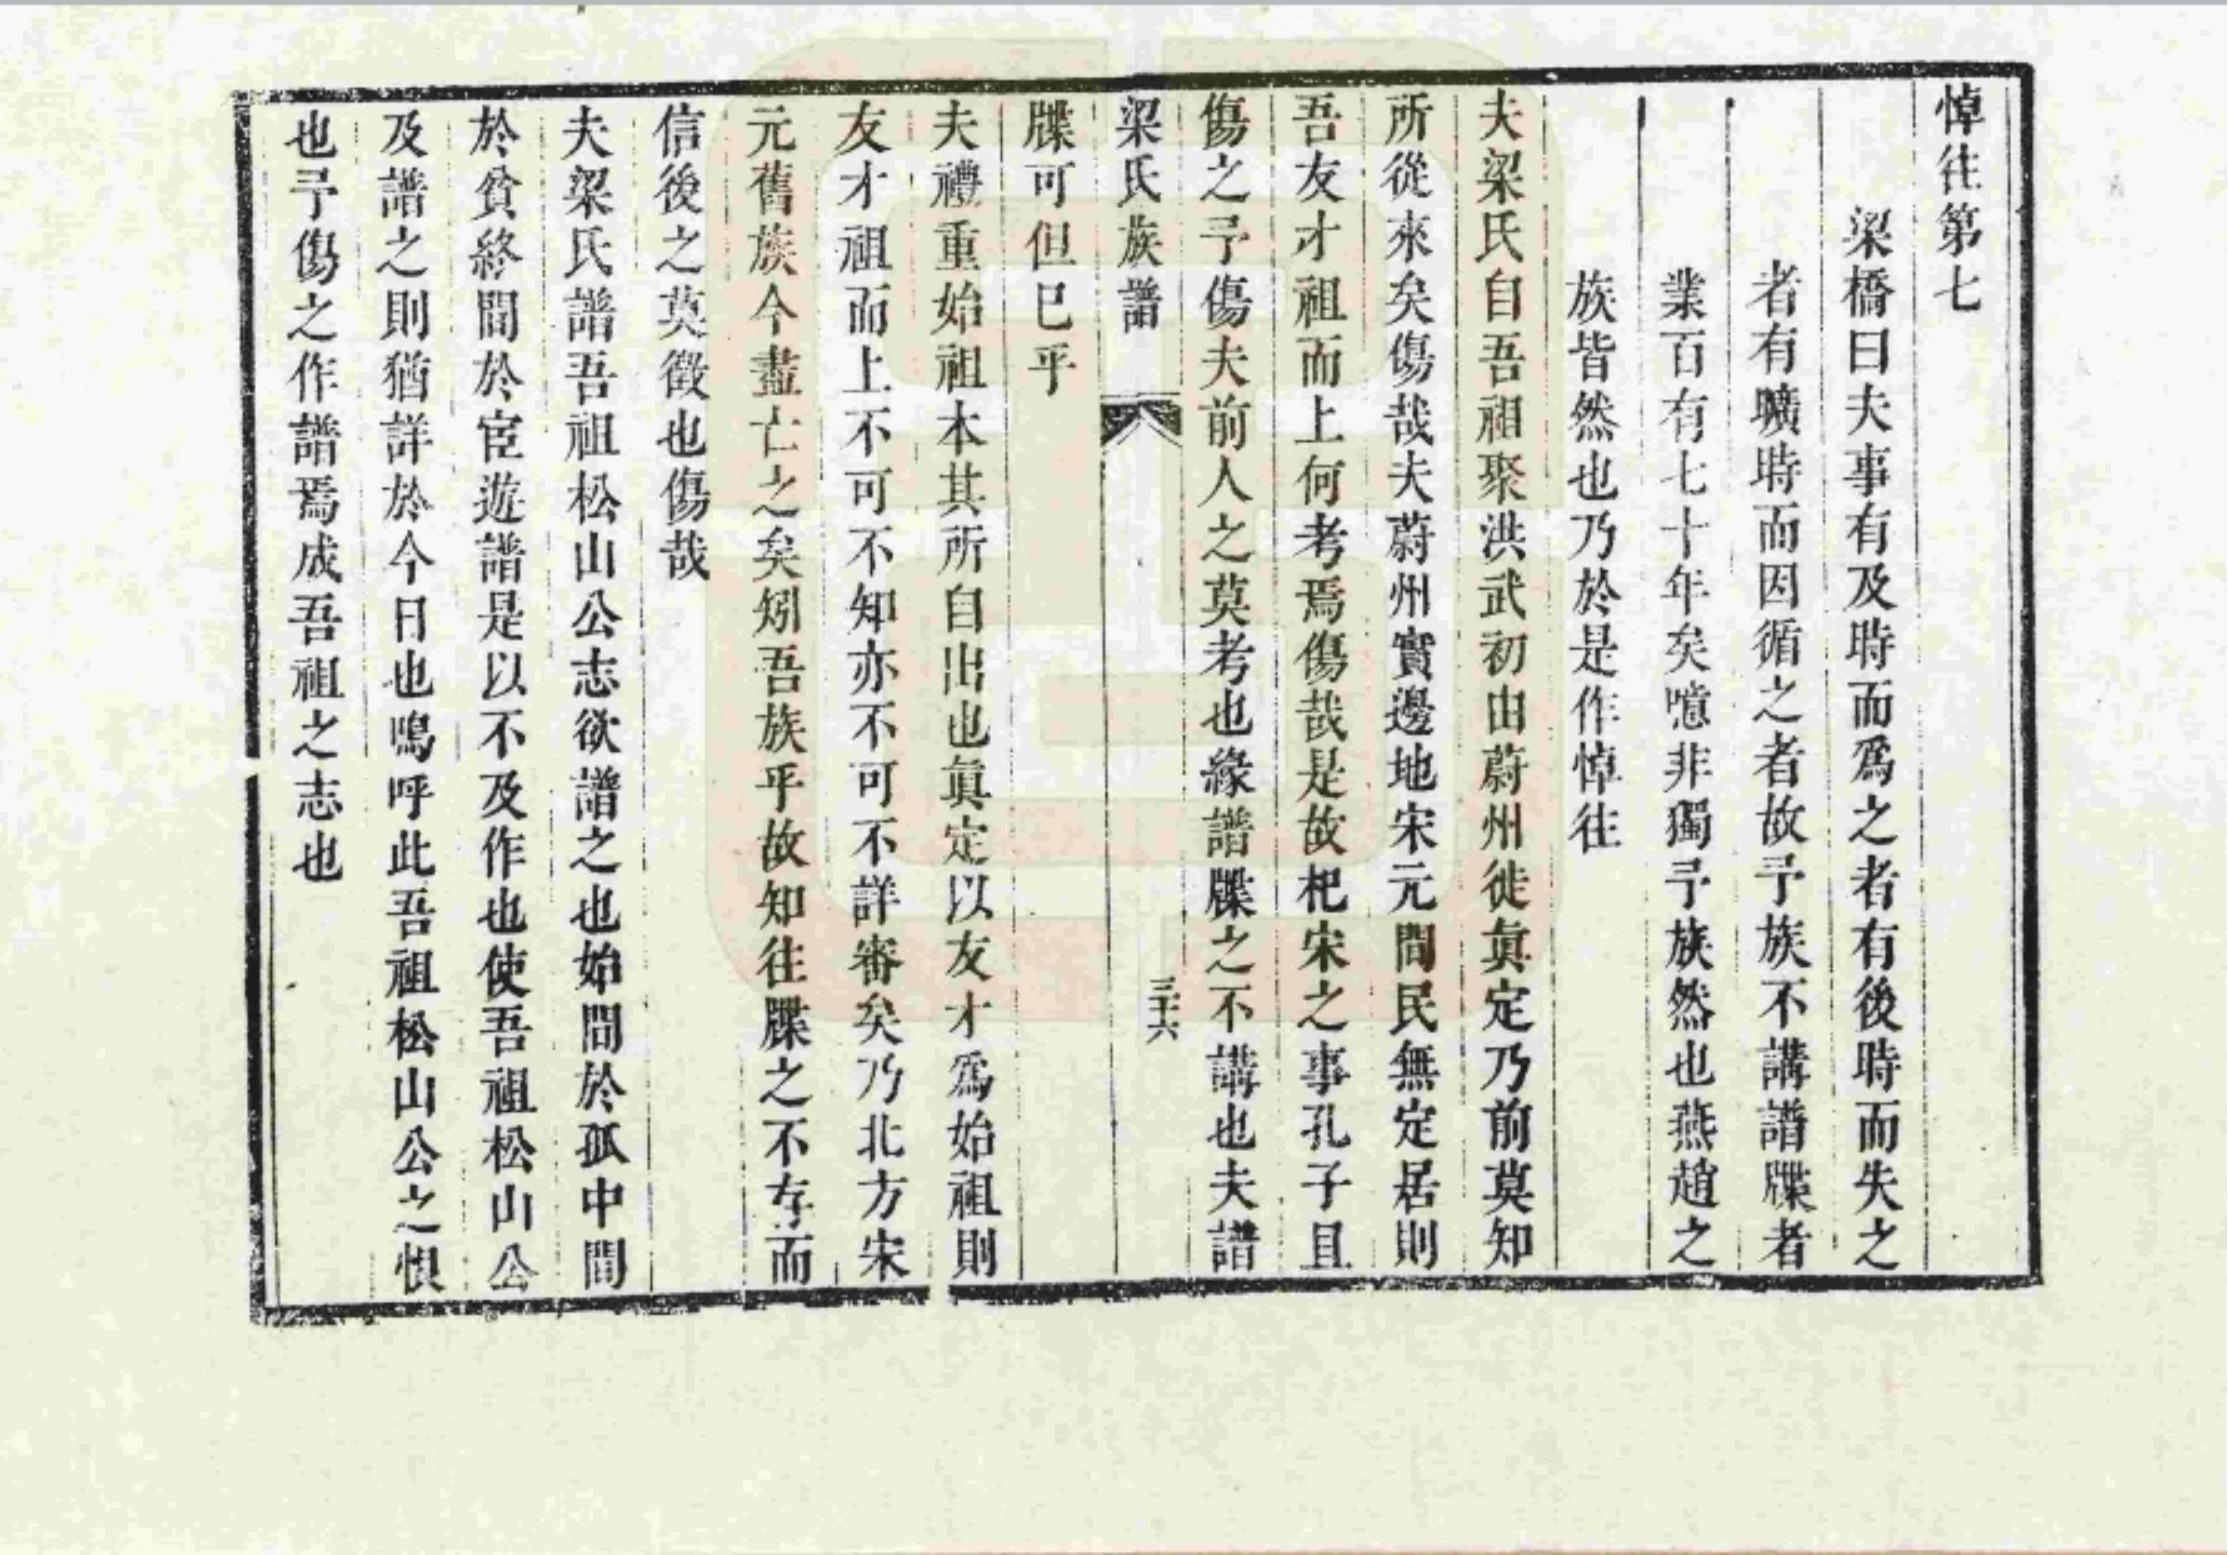 悼往第七
梁橋曰夫事有及時而爲之者有後時而失之
者有曠時而因循之者故予族不講譜牒者
業百有七十年矣噫非獨予族然也燕趙之
族皆然也乃於是作悼往
夫梁氏自吾祖聚洪武初由蔚州徙眞定乃前莫知
所從來矣傷哉夫蔚州實邊地宋元間民無定居則
吾友才祖而上何考焉傷哉是故杞宋之事孔子且
傷之予傷夫前人之莫考也緣譜牒之不講也夫譜
梁氏族譜
三十六
牒可但已乎
夫禮重始祖本其所自出也眞定以友才爲始祖則
友才祖而上不可不知亦不可不詳審矣乃北方宋
元舊族今盡亡之矣矧吾族乎故知往牒之不存而
信後之莫徵也傷哉
夫梁氏譜吾祖松山公志欲譜之也始間於孤中間
於貧終間於宦遊譜是以不及作也使吾祖松山公
及譜之則猶詳於今日也鳴呼此吾祖松山公之恨
也予傷之作譜焉成吾祖之志也